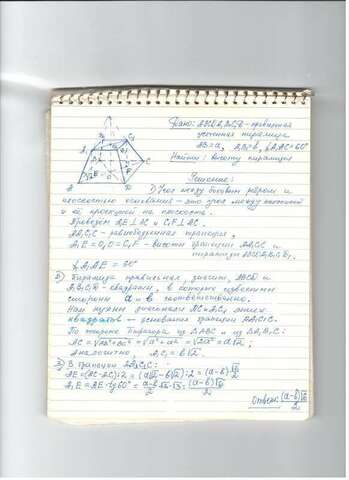 Дано: ABCDA₁B₁C₁D₁ - правильная
усечённая пирамида
AB=a, A₁B₁=b, ∠A₁AC=60°
Найти: высоту пирамиды
Решение:
1) Угол между боковым ребром и
плоскостью основания - это угол между
и её проекцией на плоскость.
Проведём A₁E⊥AC и C₁F⊥AC.
AA₁C₁C - равнобедренная трапеция,
A₁E=O₁O=C₁F - высоты трапеции AA₁C₁C и
пирамиды ABCDA₁B₁C₁D₁.
∠A₁AE = 60°
2) Пирамида правильная, значит, ABCD и
A₁B₁C₁D₁ - квадраты, в которых
стороны a и b соответственно.
Нам нужны диагонали AC и A₁C₁ этих
квадратов - основания трапеции AA₁C₁C.
По теореме Пифагора из △ABC и из △A₁B₁C₁:
AC = √a²+a² = √2a² = a√2;
аналогично, A₁C₁ = b√2.
3) В трапеции AA₁C₁C:
AE=(AC-A₁C₁):2 = (a√2-b√2):2 = (a-b)√2/2
A₁E = AE·tg60° = (a-b)√2/2·√3 = (a-b)√6/2
Ответ: (a-b)√6/2